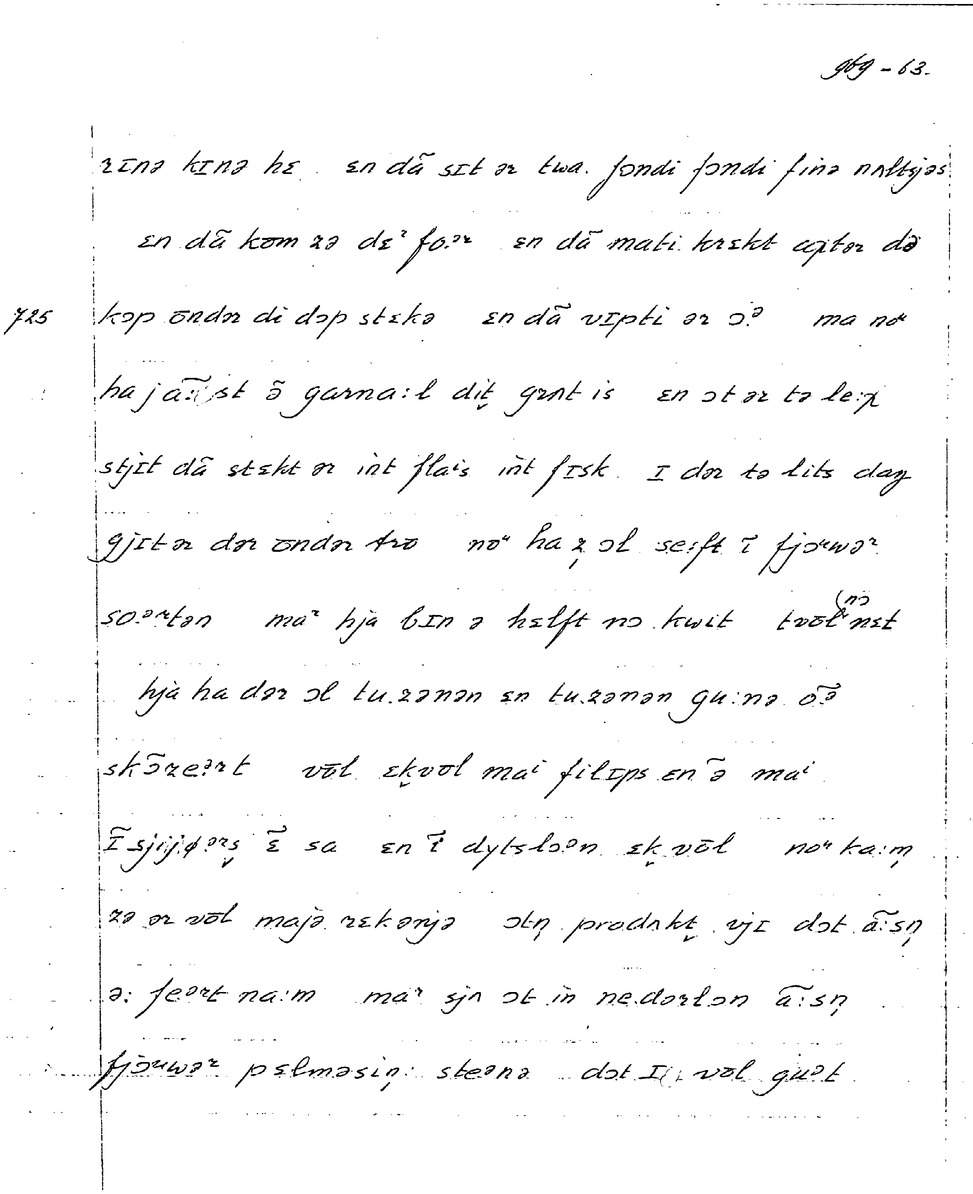 969 - 63.
rɪnə kɪnə hɛ ɛn dã sɪt ər twa. fɔndi fɔndi finə nʌltsjəs
ɛn dã kom zə dɛʳ fo.ər ɛn dã mati krɛkt ɑχtər də
725 kɔp ōndər di dɔp stɛkə ɛn dã vɪpti ər ɔ.ə ma noʳ
ha j ã:st ə̃ garna:l dit̬ grʌt is ɛn ɔt ər tə le:χ
stjɪt dã stɛkt ər int flaⁱs int fɪsk I dər tə lits dag
gjɪtər dər ōndər tro noʳ ha z̩ ɔl se:ft ĩ fjɔʳwəʳ
so.ərtən maʳ hja bɪn ə hɛlft nɔ kwit nɛt
(nɔ
hja ha dər ɔl tu.zənən ɛn tu.zənən gu:nə õ.ə
skɔ̃ze:ərt vōl ɛk̬vōl maⁱ filɪps ɛn ə̃ maⁱ
ɛ̃ sa ɛn ĩ dytslɔən ɛk̬ vōl noʳ ka:m̩
zə ər vōl majə rɛkənjə ɔtn̩ prodʌkt̬ vjɪ dɔt ã:sn̩
ə: feərt na:m maʳ sjʌ ɔt in ne.dərlɔn ã:sn̩
fjɔʳwər pɛlməsin̩: steənə dɔt I vōl guət